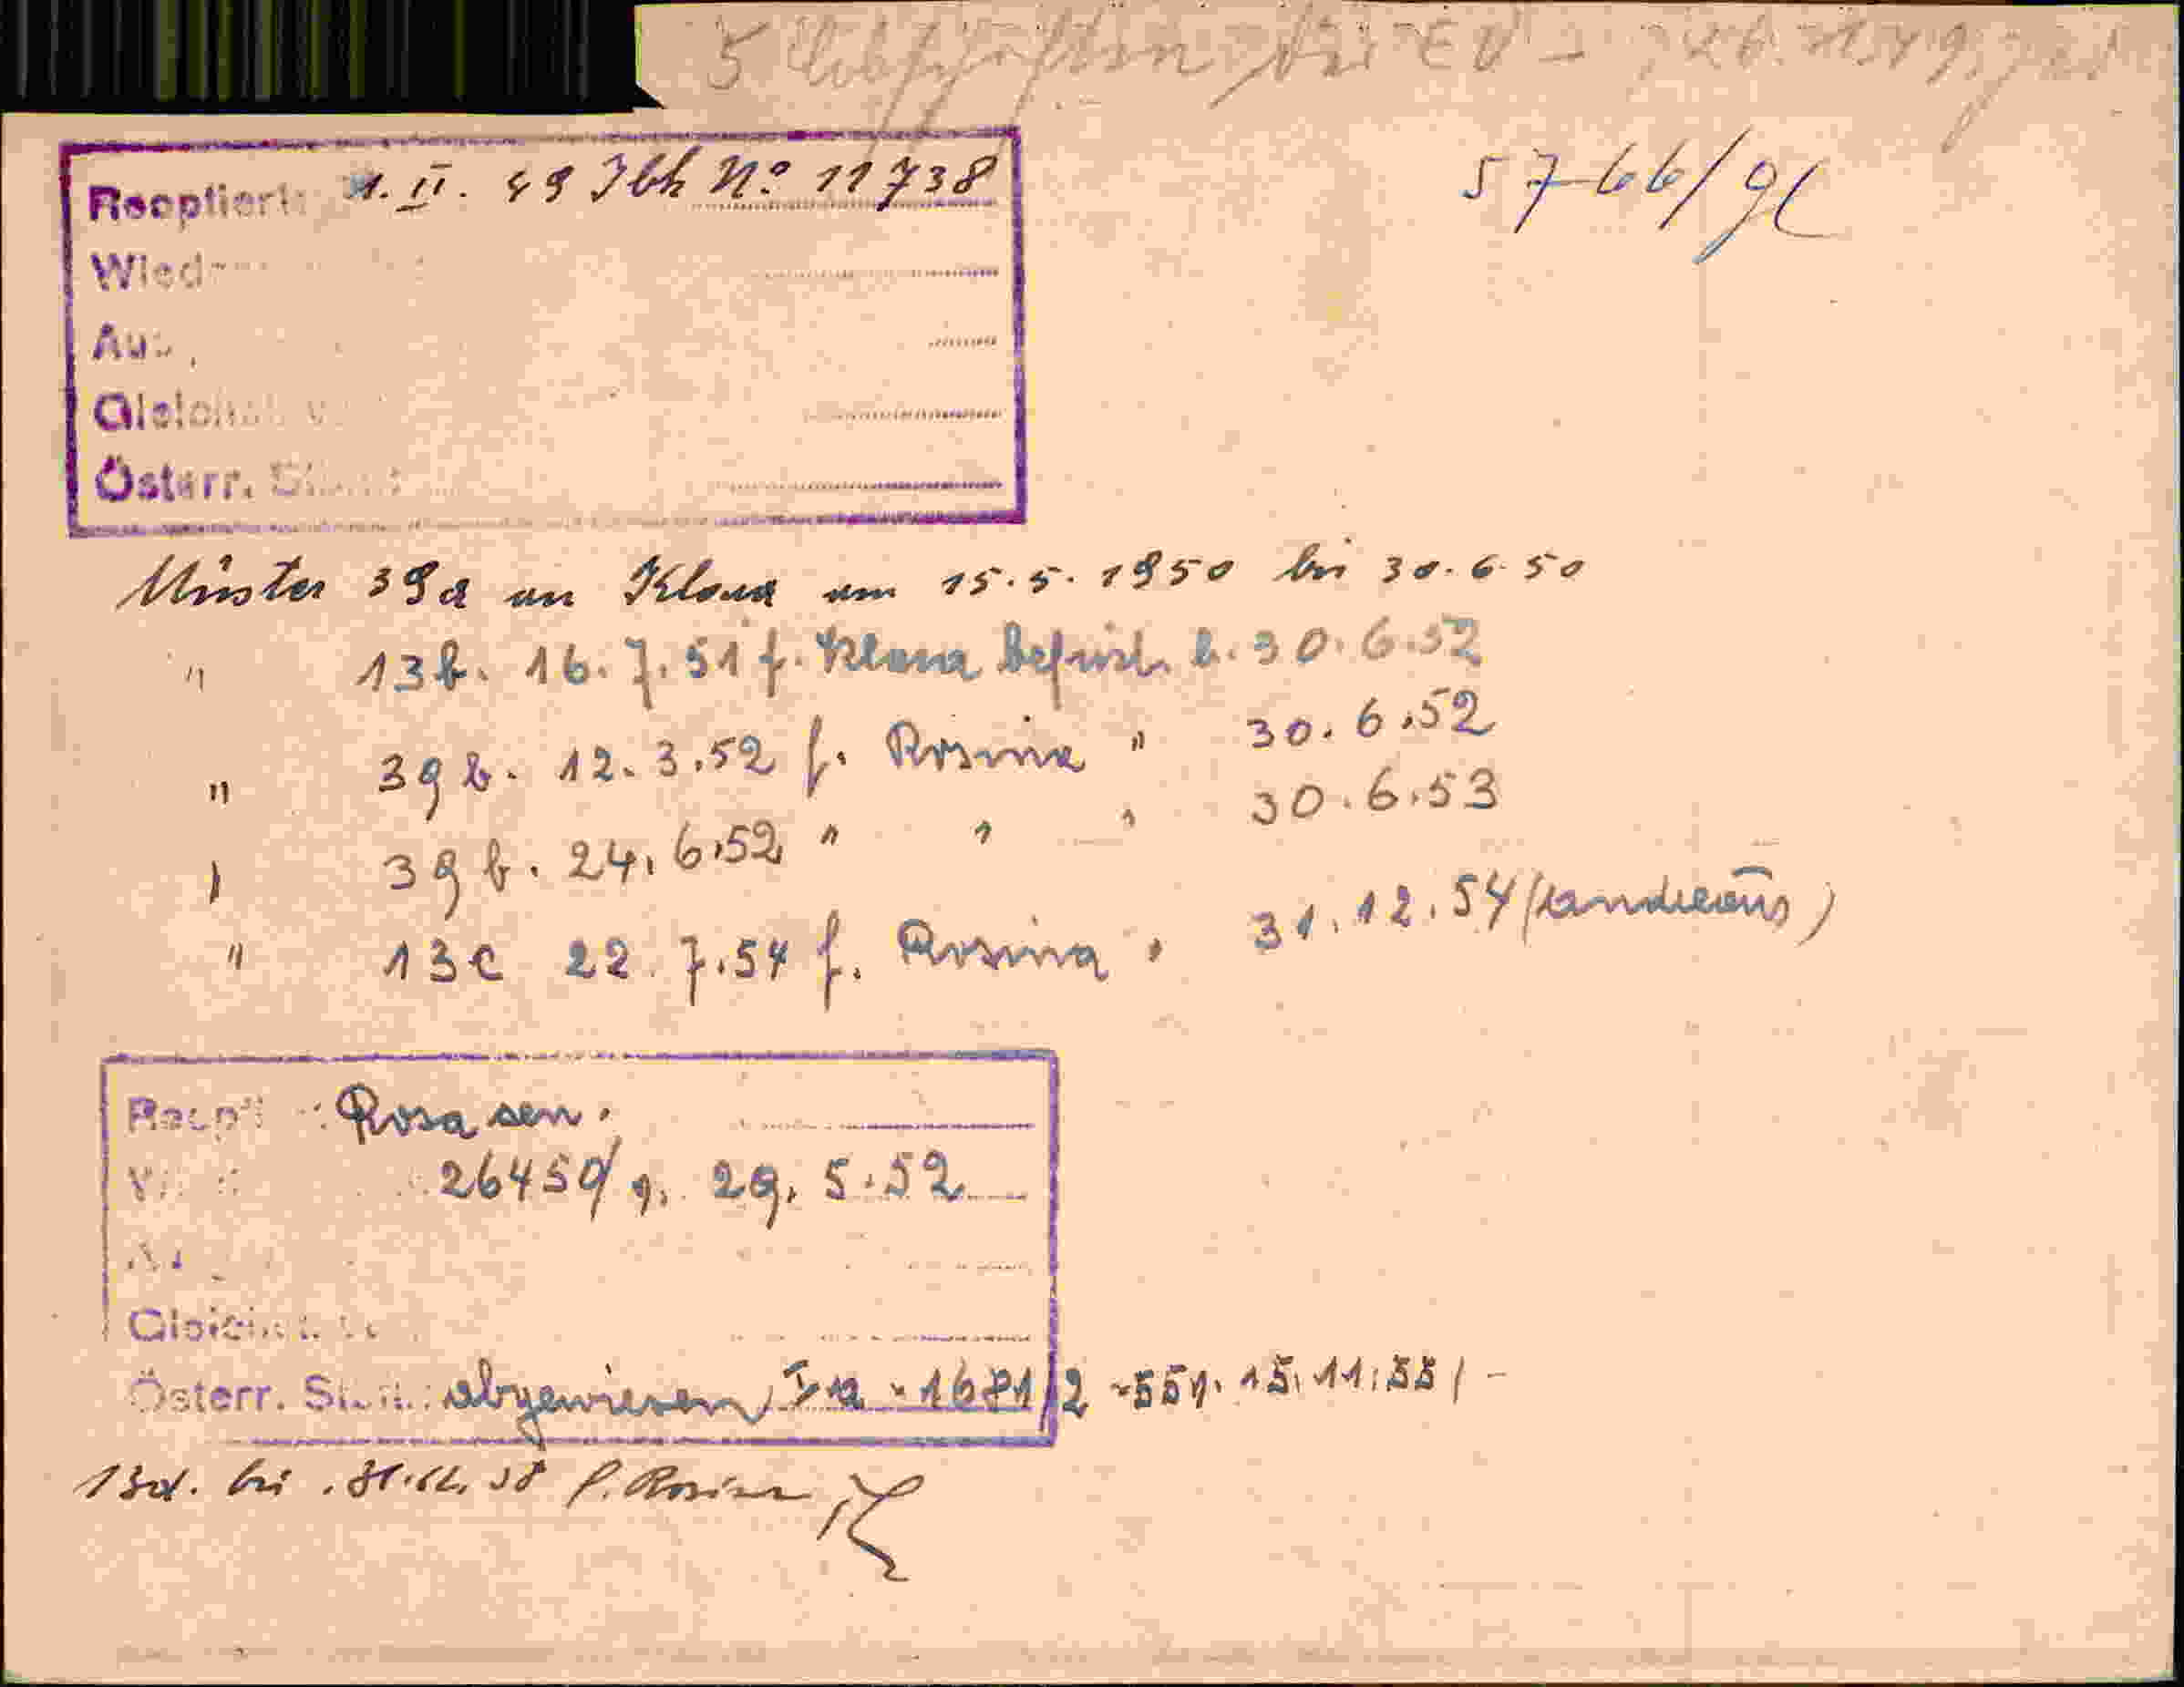 5
5766/
Reoptiert: 1. II. 49 Jbh No 11738
Wied
Aus
Gleichst. v.
Österr. St
Muster 39a an Klara am 15.5.1950 bis 30.6.50
" 13b. 16.7.51 f. Klara befrist. b. 30.6.52
" 39b. 12.3.52 f. Rosina " 30.6.52
" 39b. 24.6.52 " " " 30.6.53
" 13c 22.7.54 f. Rosina " 31.12.54
Reopt : Rosa sen.
26450/ 29.5.52
Gleichst.
Österr. St.: abgewiesen, Ia - 1681/2 - 55 15.11.55
13d. bis f. Rosina